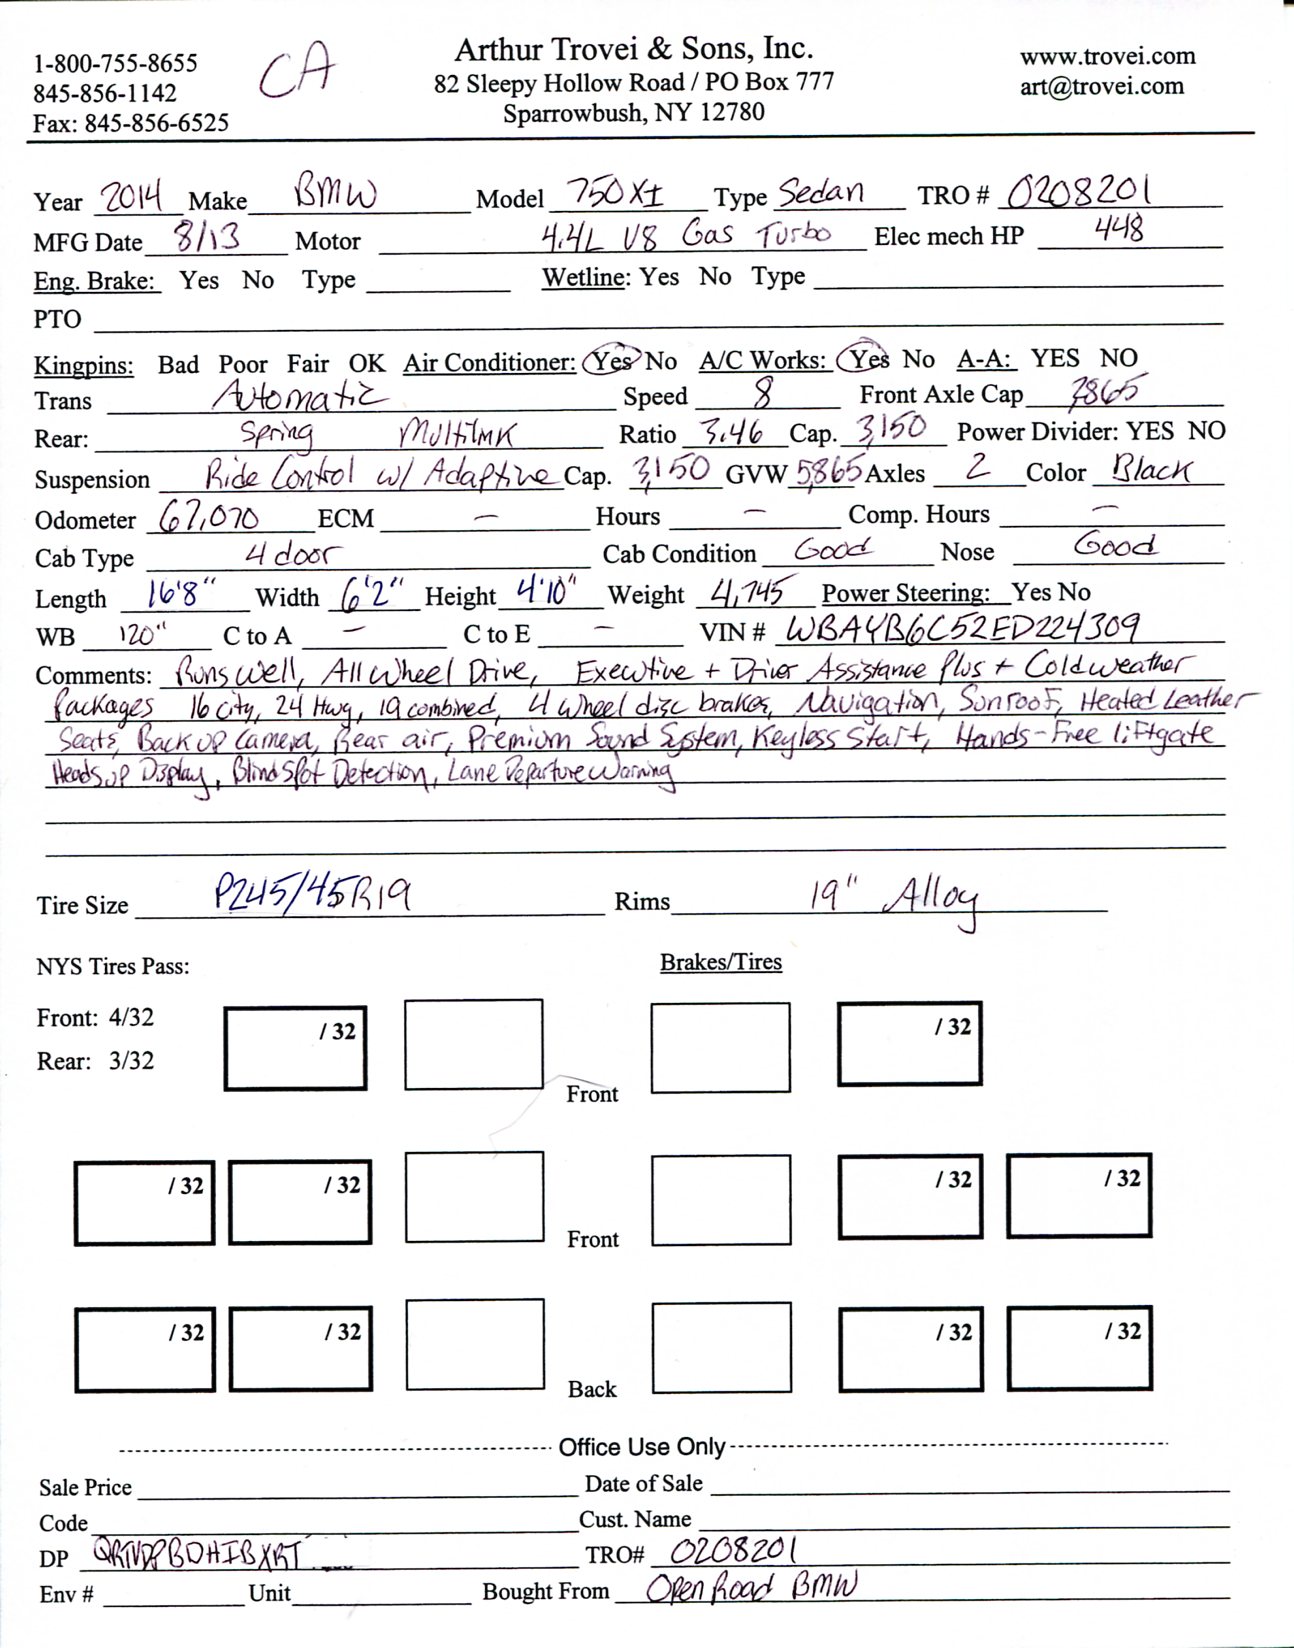 1-800-755-8655
845-856-1142
Fax: 845-856-6525
CA
Arthur Trovei & Sons, Inc.
82 Sleepy Hollow Road / PO Box 777
Sparrowbush, NY 12780
www.trovei.com
art@trovei.com
Year 2014 Make BMW Model 750XI Type Sedan TRO # 0208201
MFG Date 8/13 Motor 4.4L V8 Gas Turbo Elec mech HP 448
Eng. Brake: Yes No Type Wetline: Yes No Type
PTO
Kingpins: Bad Poor Fair OK Air Conditioner: Yes No A/C Works: Yes No A-A: YES NO
Trans Automatic Speed 8 Front Axle Cap 2865
Rear: Spring Multilink Ratio 3.46 Cap. 3,150 Power Divider: YES NO
Suspension Ride Control w/ Adaptive Cap. 3,150 GVW 5,865 Axles 2 Color Black
Odometer 67,070 ECM – Hours – Comp. Hours –
Cab Type 4 door Cab Condition Good Nose Good
Length 16'8" Width 6'2" Height 4'10" Weight 4,745 Power Steering: Yes No
WB 120" C to A – C to E – VIN # WBAYB6C52ED224309
Comments: Runs well, All Wheel Drive, Executive + Driver Assistance Plus + Cold weather
Packages 16 city, 24 Hwy, 19 combined, 4 wheel disc brakes, Navigation, Sunroof, Heated Leather
Seats, Back up Camera, Rear air, Premium Sound System, Keyless Start, Hands-Free liftgate
Heads up Display, Blind Spot Detection, Lane Departure Warning
Tire Size P245/45R19 Rims 19" Alloy
NYS Tires Pass: Brakes/Tires
Front: 4/32
Rear: 3/32
/ 32 / 32
Front
/ 32 / 32 / 32 / 32
Front
/ 32 / 32 / 32 / 32
Back
Office Use Only
Sale Price Date of Sale
Code Cust. Name
DP TRO# 0208201
Env # Unit Bought From Open Road BMW